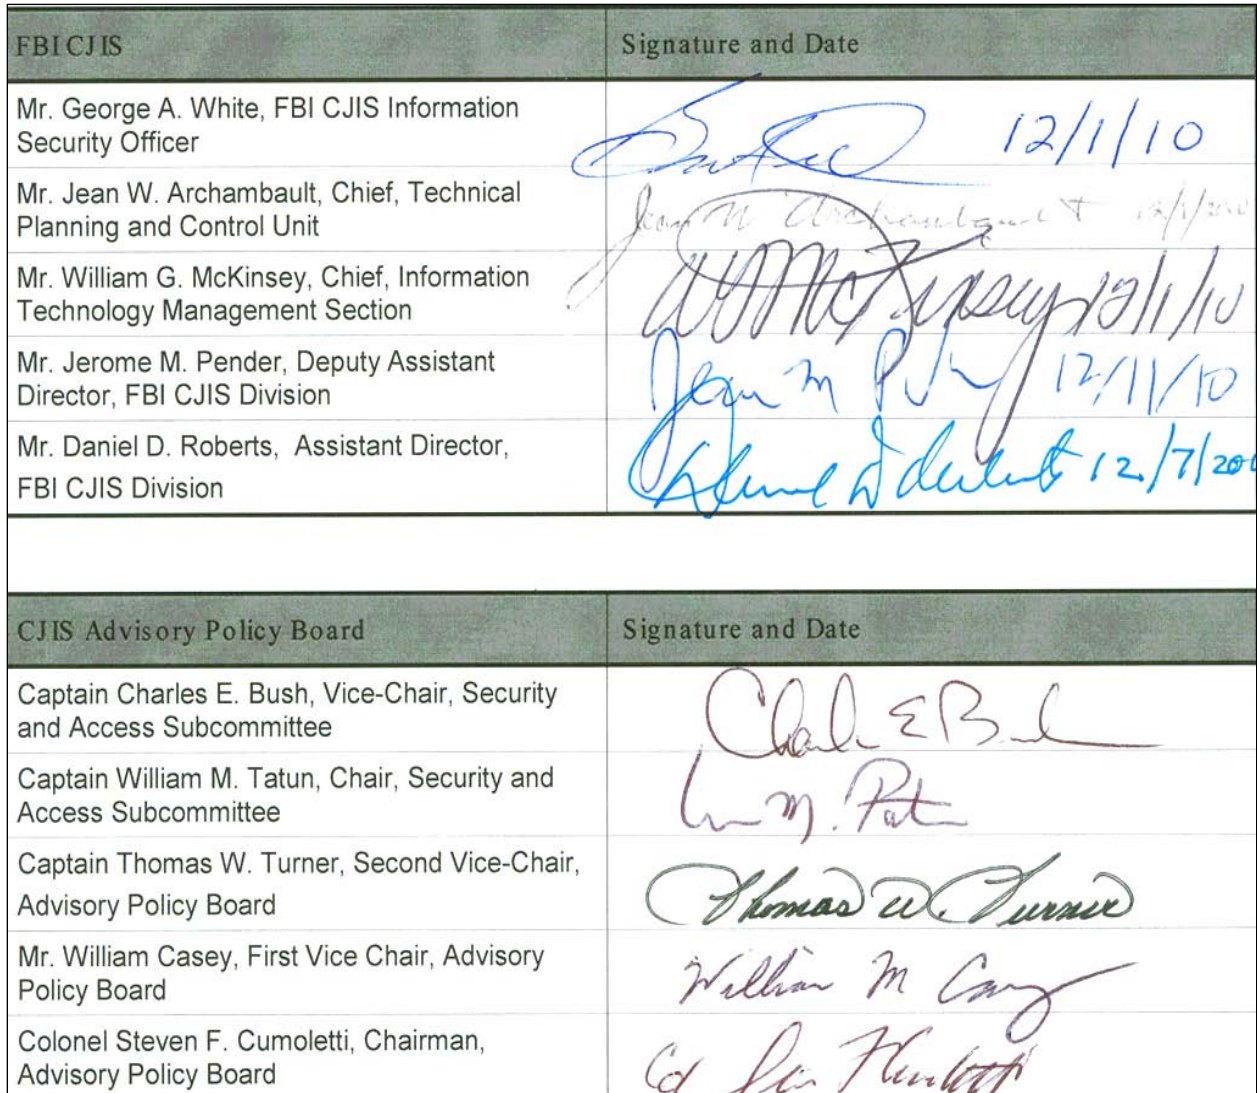 FBI CJIS Signature and Date
Mr. George A. White, FBI CJIS Information
Security Officer
12/1/10
Mr. Jean W. Archambault, Chief, Technical
Planning and Control Unit
Jean W Archambault 12/1/20
Mr. William G. McKinsey, Chief, Information
Technology Management Section
WMcKinsey 12/1/10
Mr. Jerome M. Pender, Deputy Assistant
Director, FBI CJIS Division
12/1/10
Mr. Daniel D. Roberts, Assistant Director,
FBI CJIS Division
12/7/20
CJIS Advisory Policy Board Signature and Date
Captain Charles E. Bush, Vice-Chair, Security
and Access Subcommittee
Charles E Bush
Captain William M. Tatun, Chair, Security and
Access Subcommittee
Captain Thomas W. Turner, Second Vice-Chair,
Advisory Policy Board
Thomas W. Turner
Mr. William Casey, First Vice Chair, Advisory
Policy Board
William M Casey
Colonel Steven F. Cumoletti, Chairman,
Advisory Policy Board